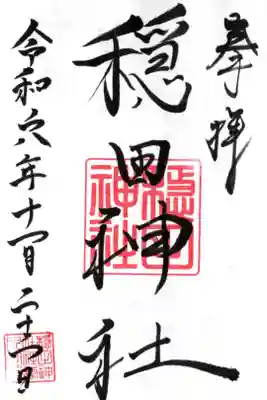 奉拝
穏田神社
穏田神社
令和六年十一月二十一日